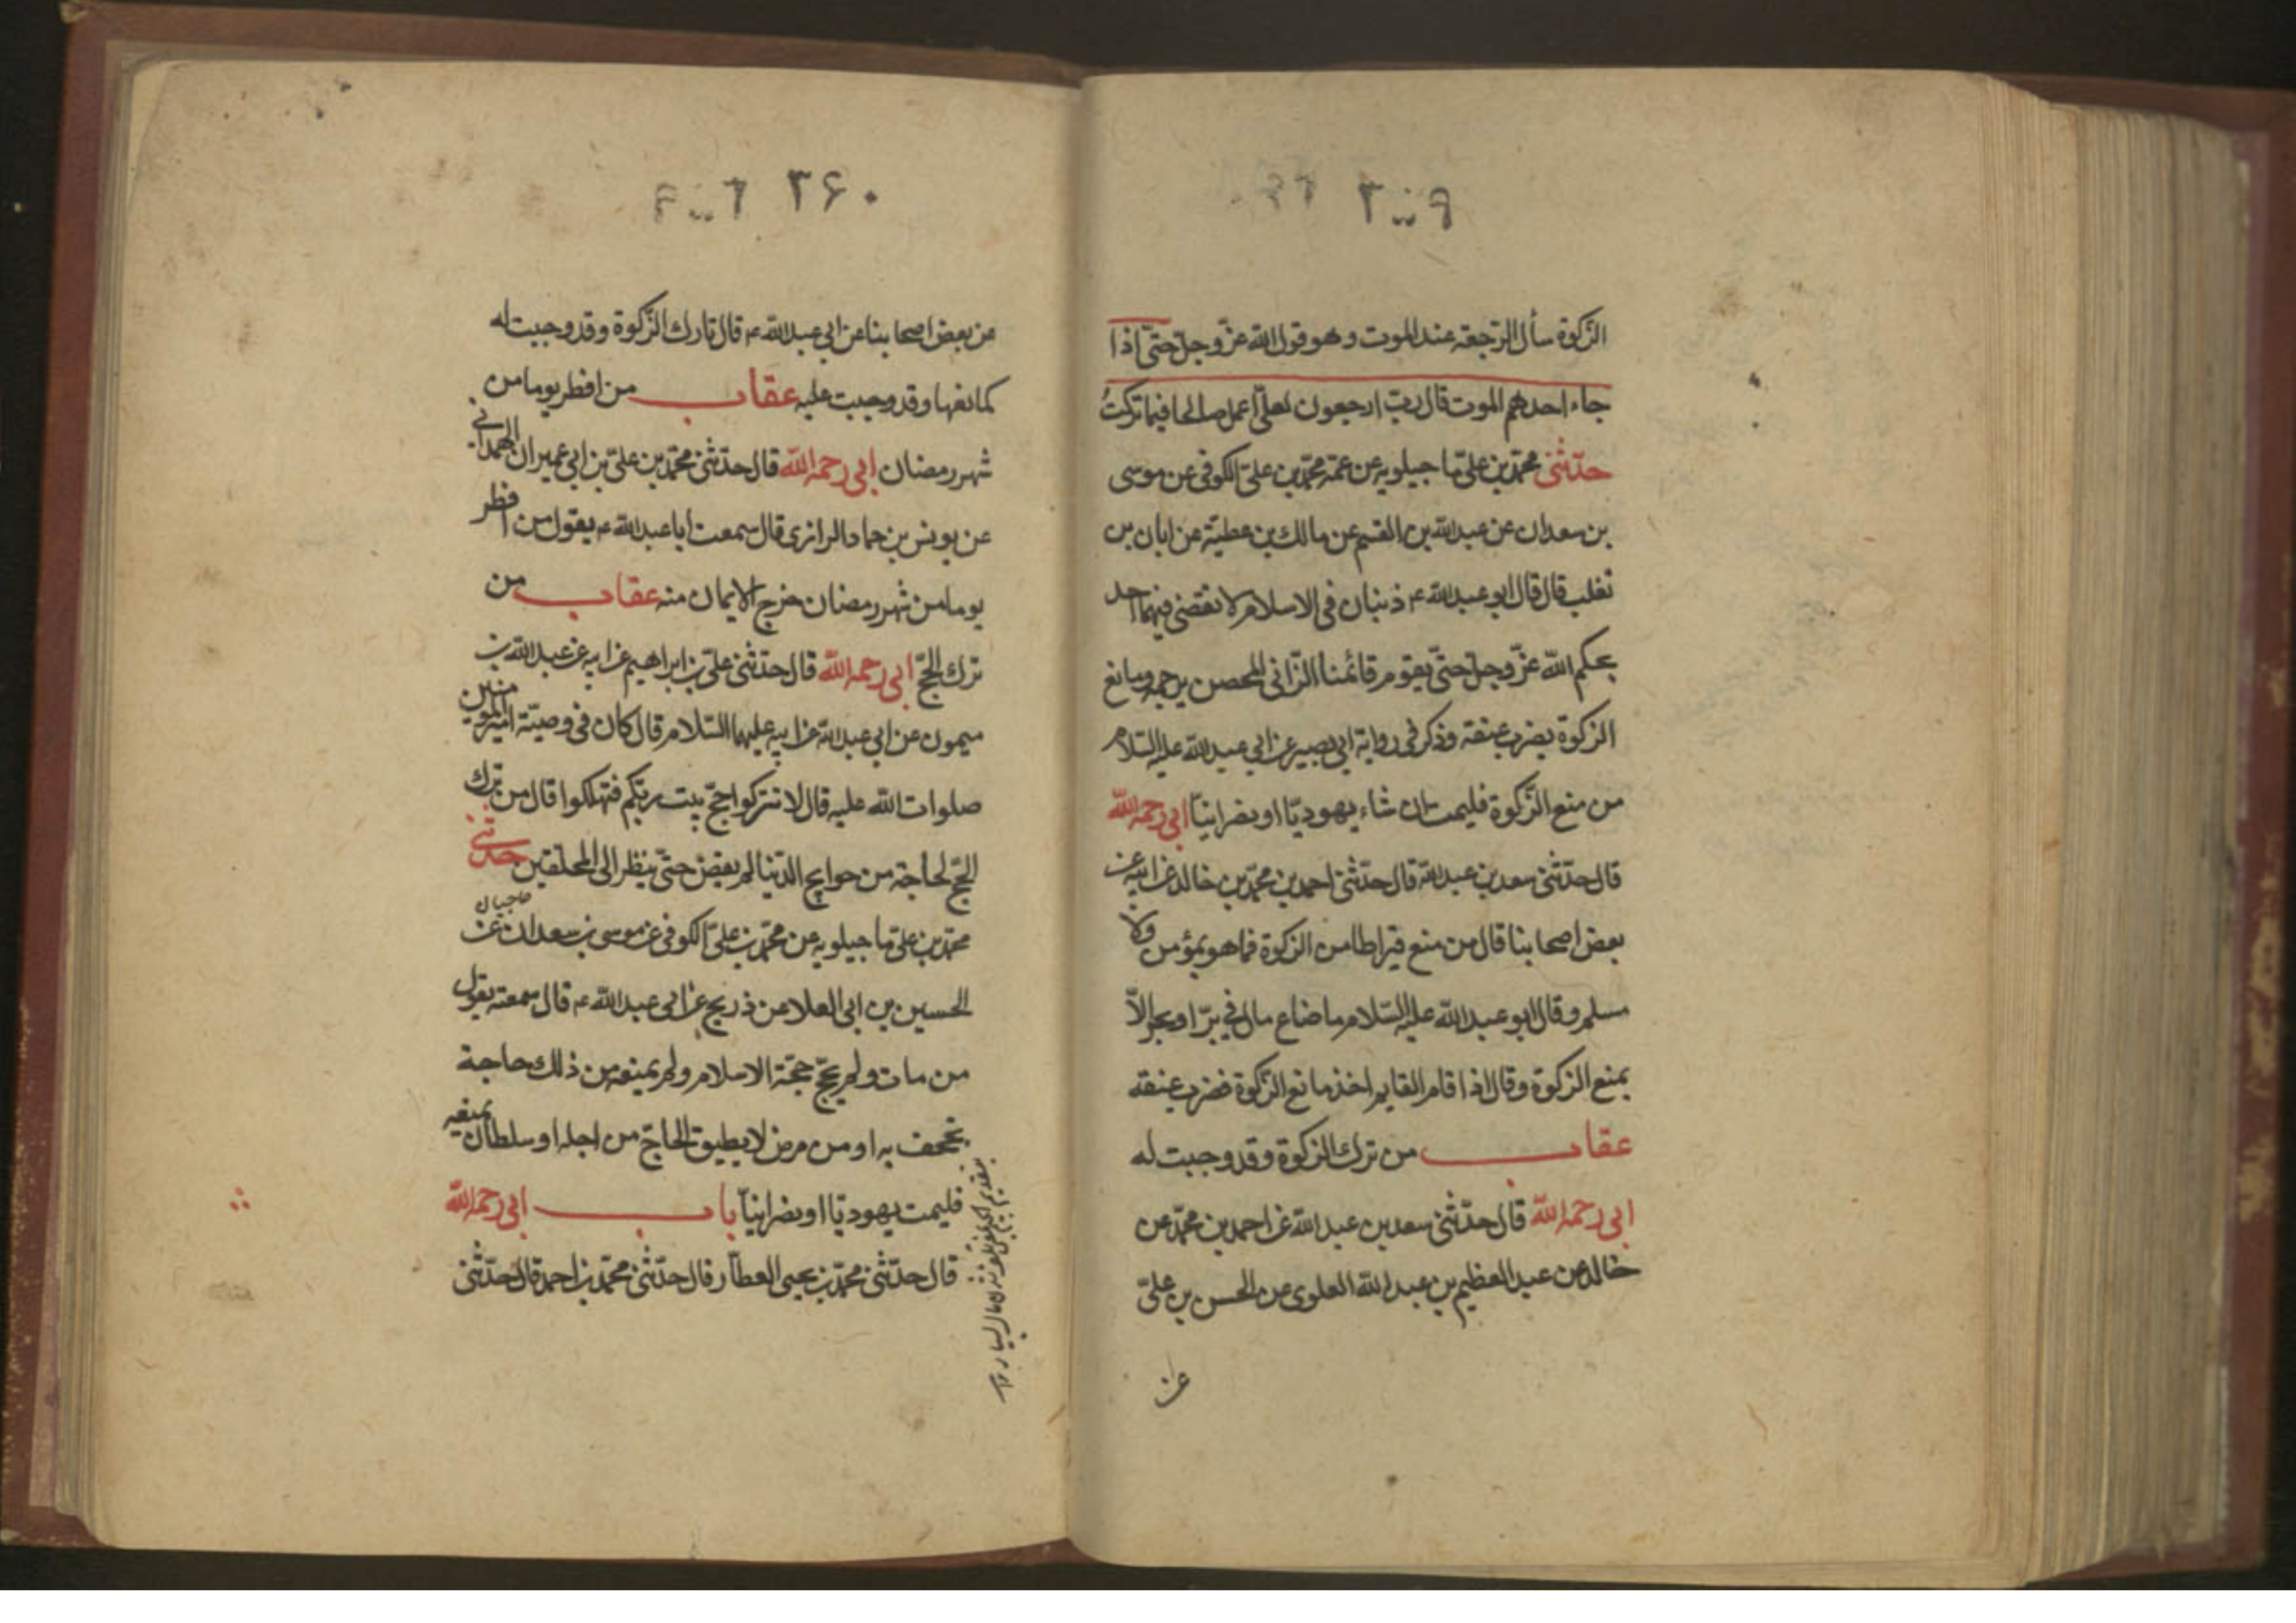 الزكوة سأل الرجعة عند الموت وهو قول الله عزّ وجلّ حتّى اذا
جاء احدهم الموت قال ربّ ارجعون لعلّى اعمل صالحا فيما تركتُ
حدّثنى محمّد بن علىّ ما جيلويه عن عمّه محمّد بن علىّ الكوفى عن موسى
بن سعدان عن عبد الله بن القسم عن مالك بن عطيّة عن ابان بن
تغلب قال قال ابو عبد الله ع ذنبان فى الاسلام لا يقضى فيهما احد
بحكم الله عزّ وجلّ حتّى يقوم قائمنا الزّانى المحصن يرجمه ومانع
الزكوة يضرب عنقه وذكر فى رواية ابى بصير عن ابى عبد الله عليه السّلام
من منع الزّكوة فليمت ان شاء يهوديّا او نصرانيّا ابى رحمه الله
قال حدّثنى سعد بن عبد الله قال حدّثنى احمد بن محمّد بن خالد عن ابيه عن
بعض اصحابنا قال من منع قيراطا من الزكوة فما هو بمؤمن ولا
مسلم وقال ابو عبد الله عليه السّلام ما ضاع مال فى برّ او بحر الاّ
بمنع الزكوة وقال اذا قام القايم اخذ مانع الزّكوة فضرب عنقه
عقاب من ترك الزكوة وقد وجبت له
ابى رحمه الله قال حدّثنى سعد بن عبد الله عن احمد بن محمّد عن
خالد عن عبد العظيم بن عبد الله العلوى عن الحسن بن علىّ
عن
۲۶۰
عن بعض اصحابنا عن ابى عبد الله ع قال تارك الزّكوة وقد وجبت له
كمانعها وقد وجبت عليه عقاب من افطر يوما من
شهر رمضان ابى رحمه الله قال حدّثنى محمّد بن علىّ بن ابى عميران الهمدانى
عن يونس بن حماد الرازى قال سمعت ابا عبد الله ع يقول من افطر
يوما من شهر رمضان خرج الايمان منه عقاب من
ترك الحجّ ابى رحمه الله قال حدّثنى علىّ بن ابراهيم عن ابيه عن عبد الله بن
ميمون عن ابى عبد الله عن ابيه عليهما السّلام قال كان فى وصيّة امير المؤمنين
صلوات الله عليه قال لا تتركوا حجّ بيت ربّكم فتهلكوا قال من ترك
الحجّ لحاجة من حوايج الدّنيا لم يقض حتّى ينظر الى المحلقين حدّثنى
محمّد بن علىّ ما جيلويه عن محمّد بن علىّ الكوفى عن موسى بن سعدان عن
الحسين بن ابى العلا عن ذريح عن ابى عبد الله ع قال سمعته يقول
من مات ولم يحجّ حجّة الاسلام ولم يمنعه من ذلك حاجة
تجحف به او من مرض لا يطيق الحاجّ من اجله او سلطان يمنعه
فليمت يهوديّا او نصرانيّا باب ابى رحمه الله
قال حدّثنى محمّد بن يحيى العطّار قال حدّثنى محمّد بن احمد قال حدّثنى